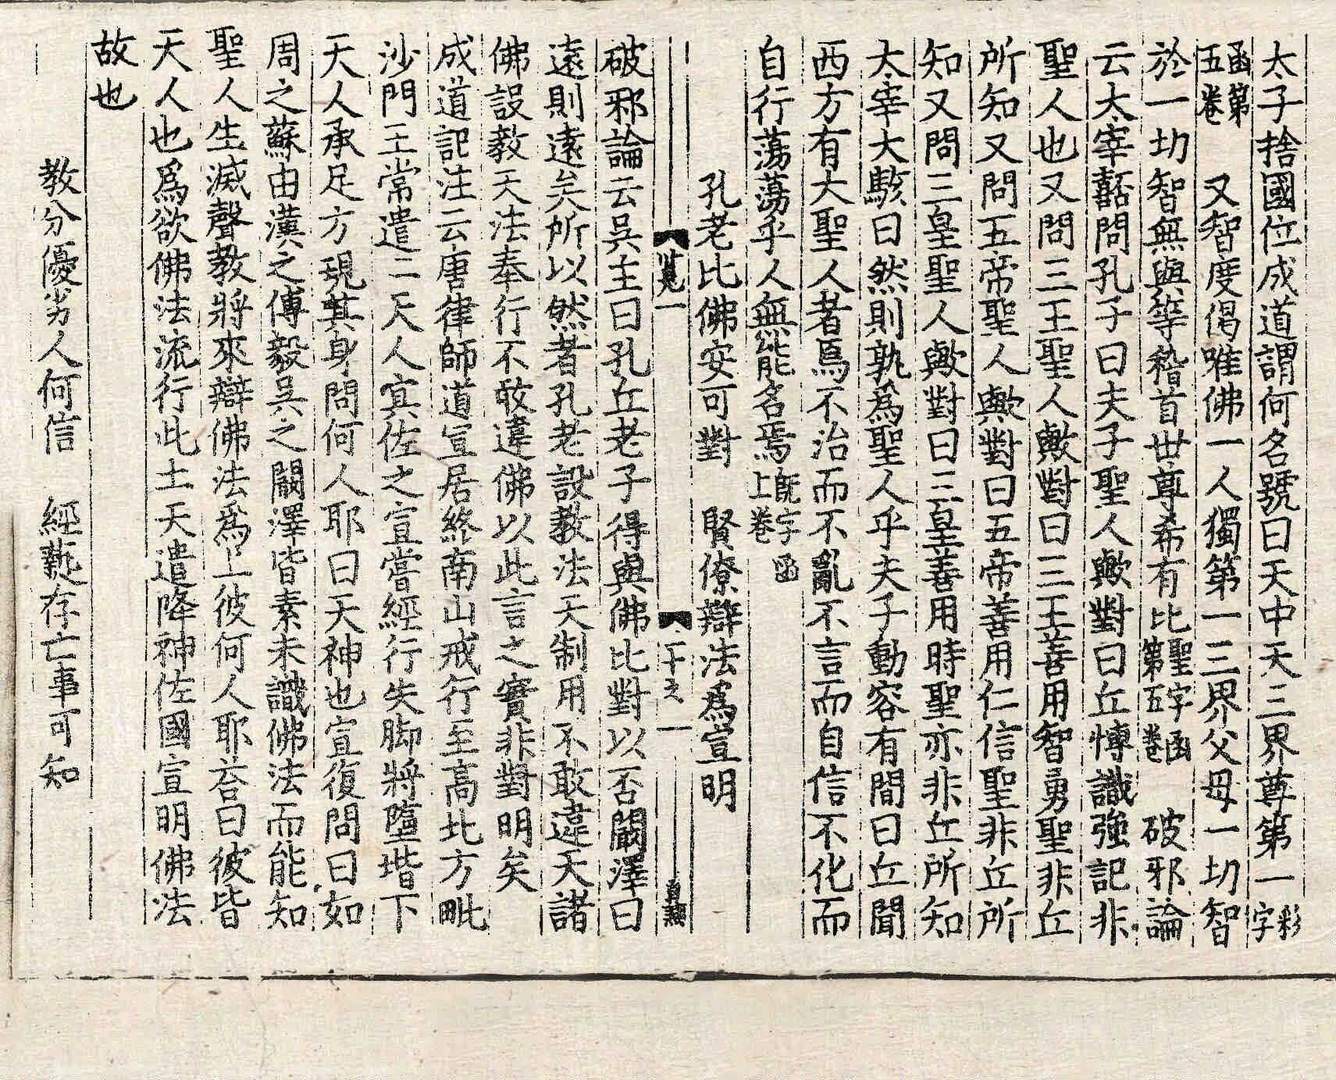 太子捨國位成道謂何名號曰天中天三界尊第一彩字
函第五卷　又智度偈唯佛一人獨第一三界父母一切智
於一切智無與等稽首世尊希有比聖字函第五卷　破邪論
云太宰嚭問孔子曰夫子聖人歟對曰丘愽識強記非
聖人也又問三王聖人歟對曰三王善用智勇聖非丘
所知又問五帝聖人歟對曰五帝善用仁信聖非丘所
知又問三皇聖人歟對曰三皇善用時聖亦非丘所知
太宰大駭曰然則孰爲聖人乎夫子動容有間曰丘聞
西方有大聖人者焉不治而不亂不言而自信不化而
自行蕩蕩乎人無能名焉旣字函上卷
孔老比佛安可對　賢僚辯法爲宣明
破邪論云吳主曰孔丘老子得與佛比對以否闞澤曰
遠則遠矣所以然者孔老設教法天制用不敢違天諸
佛設教天法奉行不敢違佛以此言之實非對明矣
成道記注云唐律師道宣居終南山戒行至高北方毗
沙門王常遣二天人冥佐之宣嘗經行失脚將墮堦下
天人承足方現其身問何人耶曰天神也宣復問曰如
周之蘇由漢之傅毅吳之闞澤皆素未識佛法而能知
聖人生滅聲教將來辯佛法爲上彼何人耶荅曰彼皆
天人也爲欲佛法流行此土天遣降神佐國宣明佛法
故也
教分優劣人何信　經爇存亡事可知